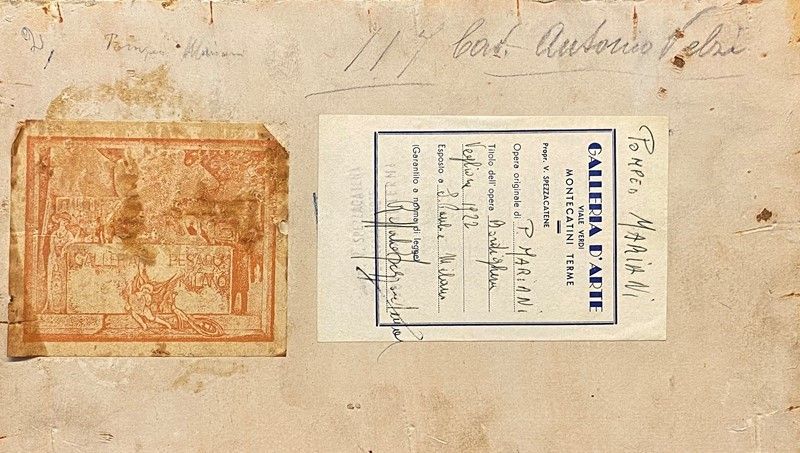 2,
Pompeo Mariani
117 Cav. Antonio Velzi
GALLERIA PESARO
MILANO
POMPEO MARIANI
GALLERIA D'ARTE
VIALE VERDI
MONTECATINI TERME
Propr. V. SPEZZACATENE
Opera originale di P. MARIANI
Titolo dell'opera Bordighera
1922
Esposto a S. Paulo e Milano
(Garantito a norma di legge)